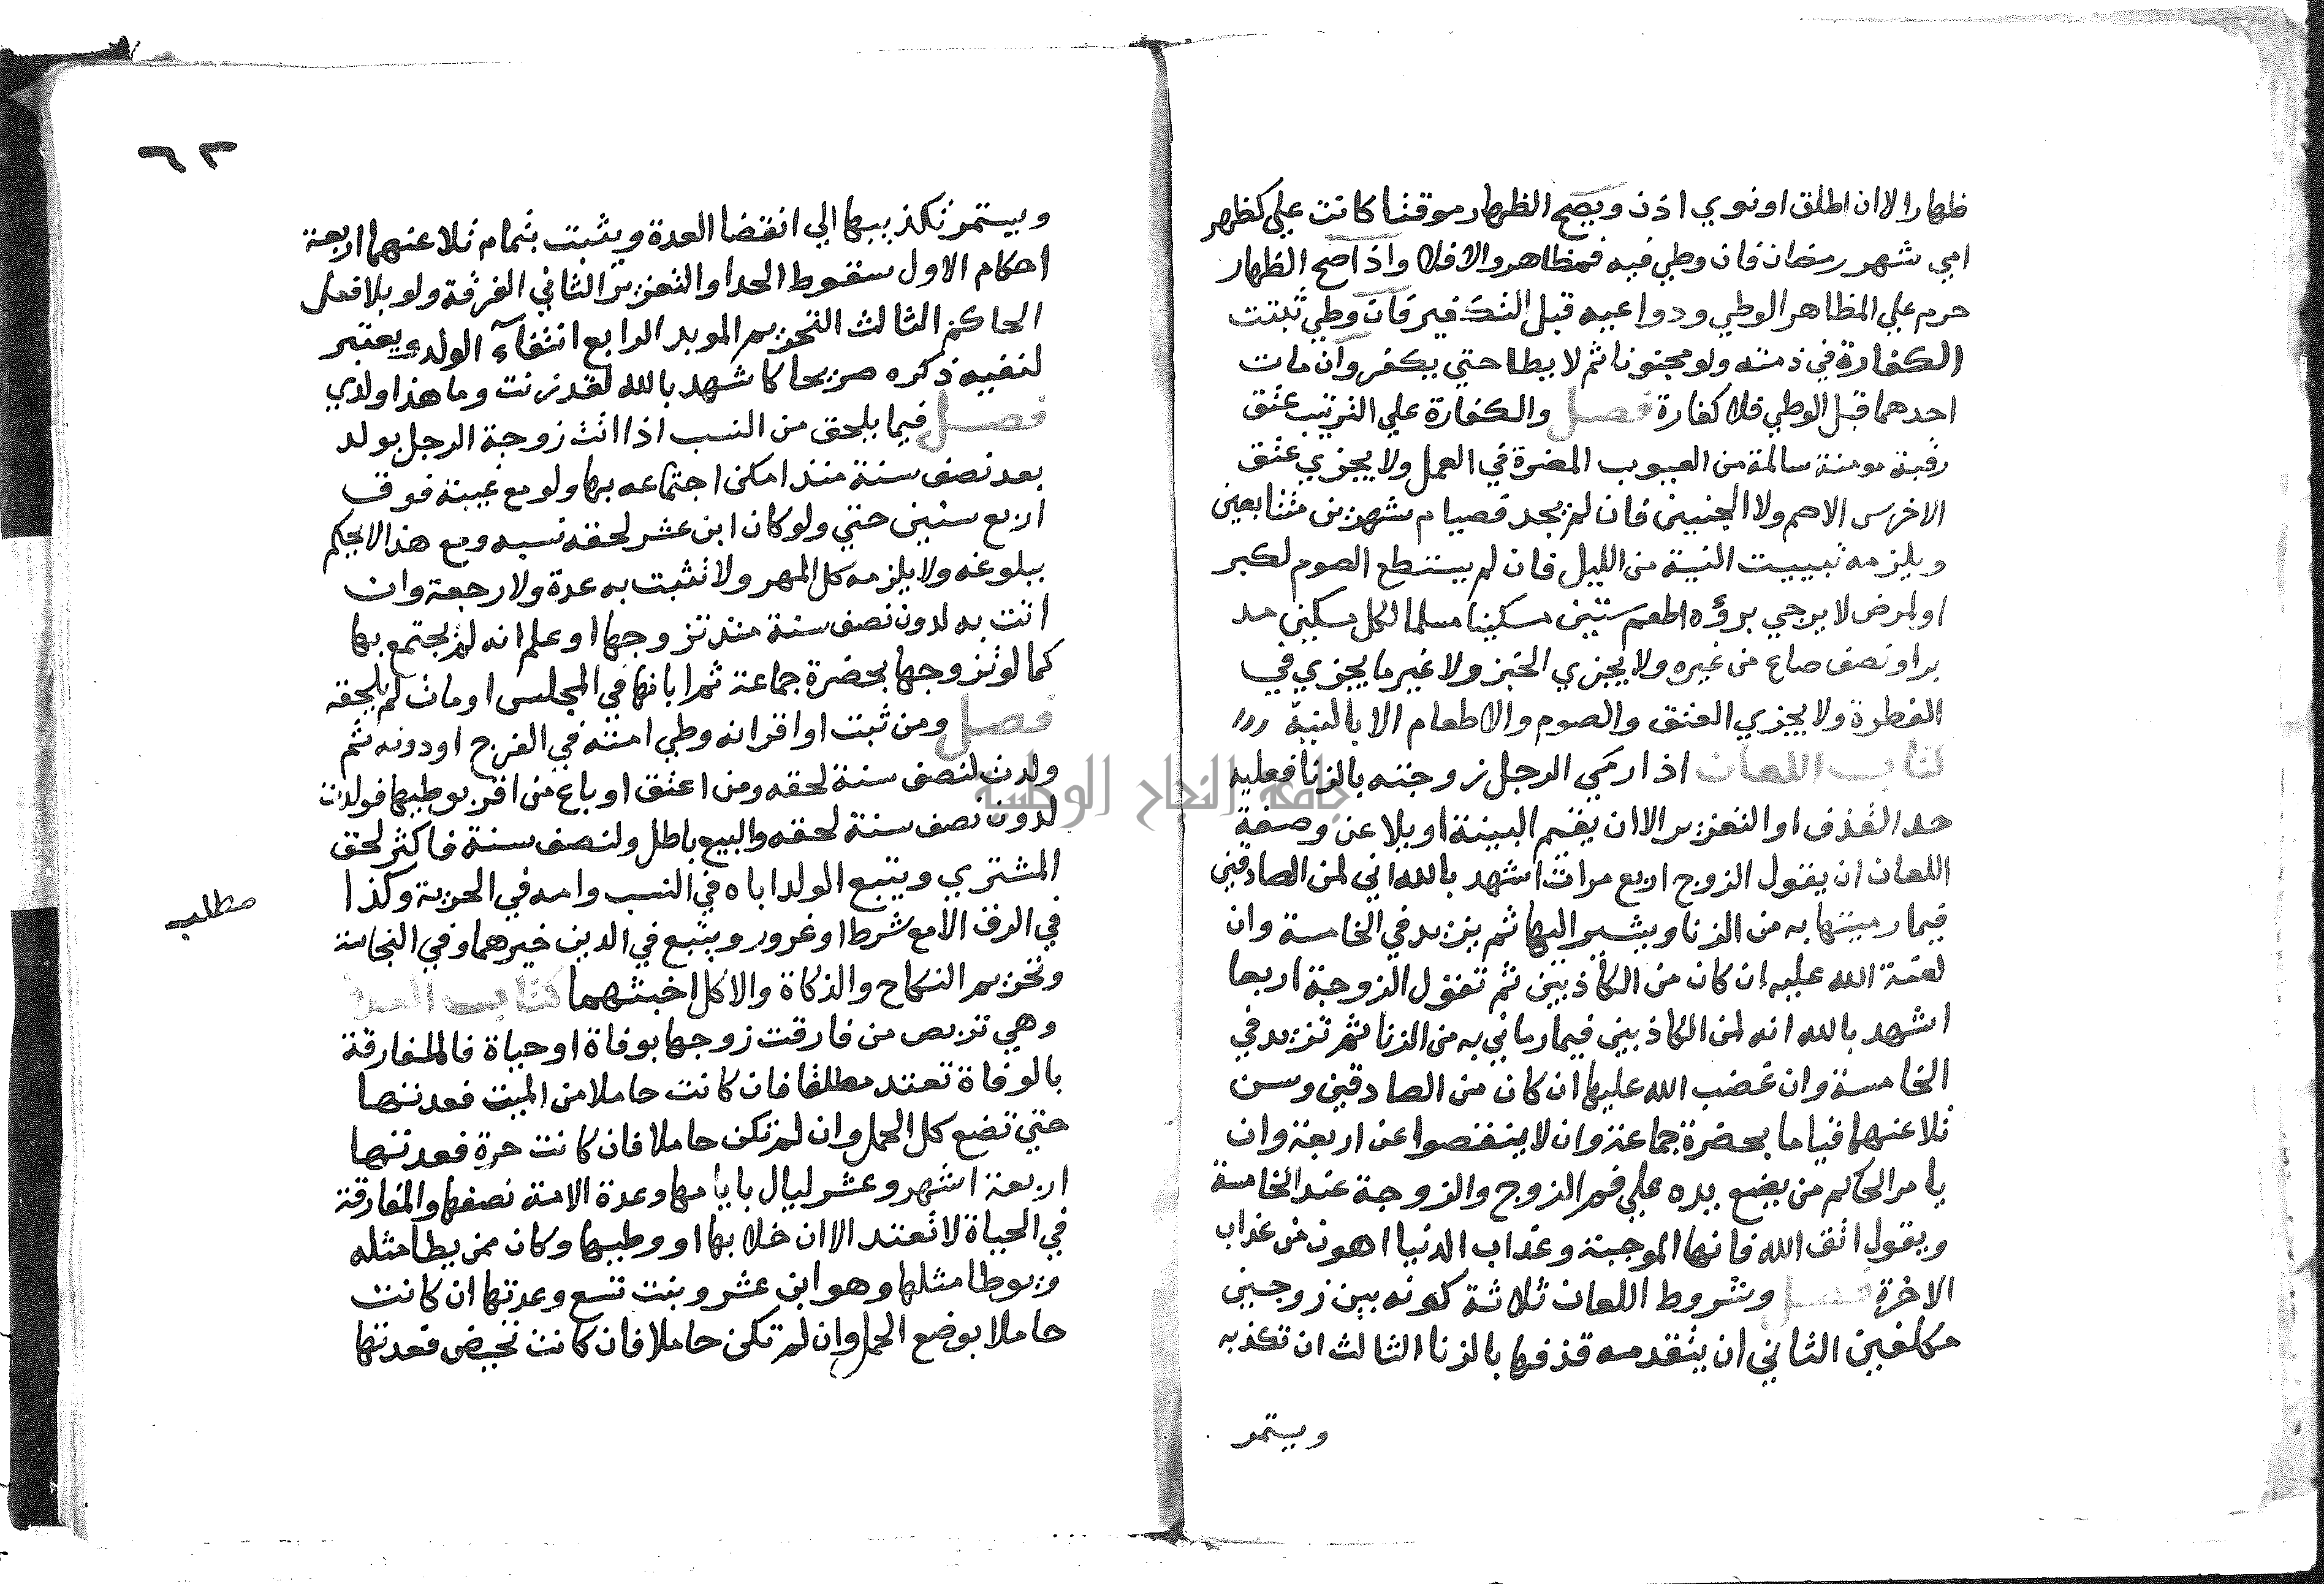 ظهارا الا ان اطلق او نوي اذن ويصح الظهار موقتا كانت علي كظهر
امي شهر رمضان فان وطي فيه فمظاهر والا فلا واذا صح الظهار
حرم علي المظاهر الوطي ودواعيه قبل التكفير فان وطي ثبتت
الكفارة في ذمته ولو مجنونا ثم لا يطا حتي يكفر وان مات
احدهما قبل الوطي فلا كفارة فصل والكفارة علي الترتيب عتق
رقبة مومنة سالمة من العيوب المضرة في العمل ولا يجزي عتق
الاخرس الاصم ولا الجنين فان لم يجد فصيام شهرين متتابعين
ويلزمه تبييت النية من الليل فان لم يستطع الصوم لكبر
او لمرض لا يرجي برؤه اطعم ستين مسكينا مسلما لكل مسكين مد
بر او نصف صاع من غيره ولا يجزي الخبز ولا غير ما يجزي في
الفطرة ولا يجزي العتق والصوم والاطعام الا بالنية
كتاب اللعان اذا رمي الرجل زوجته بالزنا فعليه
حد القذف او التعزير الا ان يقم البينة او يلاعن وصفة
اللعان ان يقول الزوج اربع مرات اشهد بالله اني لمن الصادقين
فيما رميتها به من الزنا ويشير اليها ثم يزيد في الخامسة وان
لعنة الله عليه ان كان من الكاذبين ثم تقول الزوجة اربعا
اشهد بالله انه لمن الكاذبين فيما رماني به من الزنا ثم تزيد في
الخامسة وان غضب الله عليها ان كان من الصادقين وسن
تلاعنهما قياما بحضرة جماعة وان لا ينقصوا عن اربعة وان
يامر الحاكم من يضع يده علي فم الزوج والزوجة عند الخامسة
ويقول اتق الله فانها الموجبة وعذاب الدنيا اهون من عذاب
الاخرة فصل وشروط اللعان ثلاثة كونه بين زوجين
مكلفين الثاني ان يتقدمه قذفها بالزنا الثالث ان تكذبه
ويستمر
٦٢
ويستمر تكذيبها الي انقضا العدة ويثبت بتمام تلاعنهما اربعة
احكام الاول سقوط الحد او التعزير الثاني الفرقة ولو بلا فعل
الحاكم الثالث التحريم الموبد الرابع انتفآء الولد ويعتبر
لنفيه ذكره صريحا كاشهد بالله لقد زنت وما هذا ولدي
فصل فيما يلحق من النسب اذا اتت زوجة الرجل بولد
بعد نصف سنة منذ امكن اجتماعه بها ولو مع غيبة فوق
اربع سنين حتي ولو كان ابن عشر لحقه نسبه ومع هذا لا يحكم
ببلوغه ولا يلزمه كل المهر ولا تثبت به عدة ولا رجعة وان
اتت به لدون نصف سنة منذ تزوجها او علم انه لم يجتمع بها
كما لو تزوجها بحضرة جماعة ثم ابانها في المجلس او مات لم يلحقه
فصل ومن ثبت او اقر انه وطي امته في الفرج او دونه ثم
ولدت لنصف سنة لحقه ومن اعتق او باع من اقر بوطيها فولدت
لدون نصف سنة لحقه والبيع باطل ولنصف سنة فاكثر لحق
المشتري ويتبع الولد اباه في النسب وامه في الحرية وكذا
مطلب
في الرق الا مع شرط او غرور ويتبع في الدين خيرهما وفي النجاسة
وتحريم النكاح والذكاة والاكل اخبثهما كتاب العدة
وهي تربص من فارقت زوجها بوفاة او حياة فالمفارقة
بالوفاة تعتد مطلقا فان كانت حاملا من الميت فعدتها
حتي تضع كل الحمل وان لم تكن حاملا فان كانت حرة فعدتها
اربعة اشهر وعشر ليال بايامها وعدة الامة نصفها والمفارقة
في الحياة لا تعتد الا ان خلا بها او وطيها وكان ممن يطا مثله
ويوطا مثلها وهو ابن عشر وبنت تسع وعدتها ان كانت
حاملا بوضع الحمل وان لم تكن حاملا فان كانت تحيض فعدتها
جامعة النجاح الوطنية